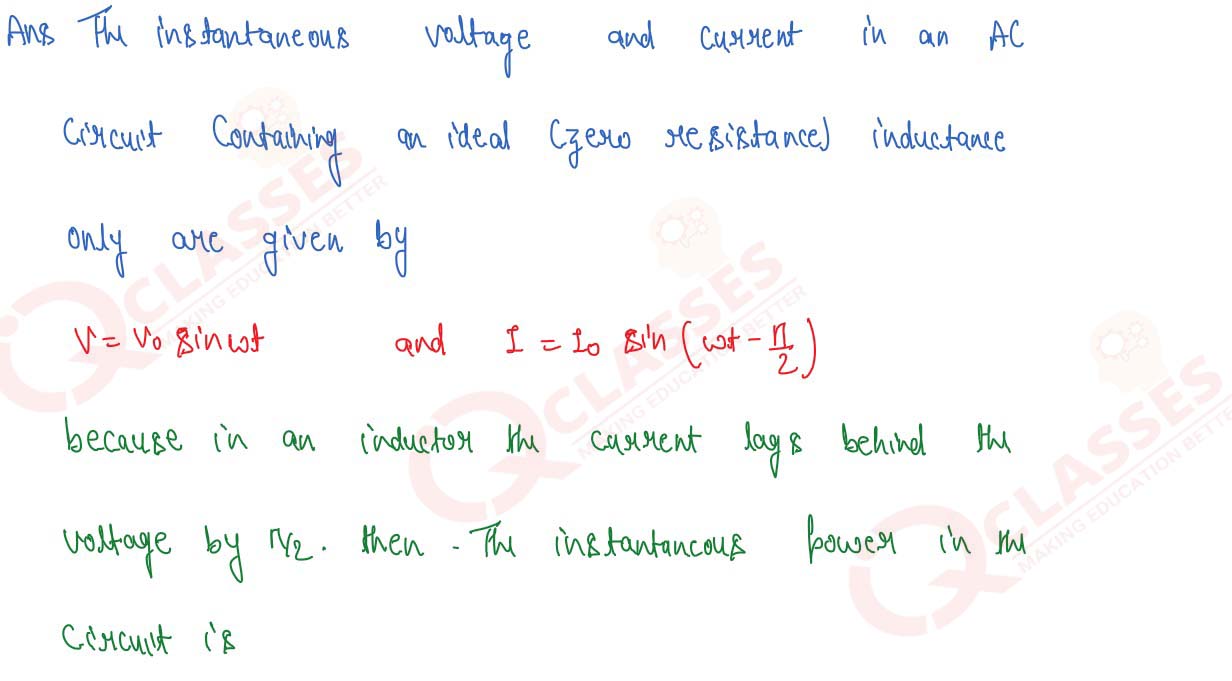 Ans The instantaneous voltage and current in an AC
Circuit Containing an ideal (zero resistance) inductance
only are given by
V = V₀ sin ωt and I = I₀ sin (ωt - π/2)
because in an inductor the current lags behind the
voltage by π/2. then - The instantaneous power in the
Circuit is
CLASSES
MAKING EDUCATION BETTER
CLASSES
MAKING EDUCATION BETTER
CLASSES
MAKING EDUCATION BETTER